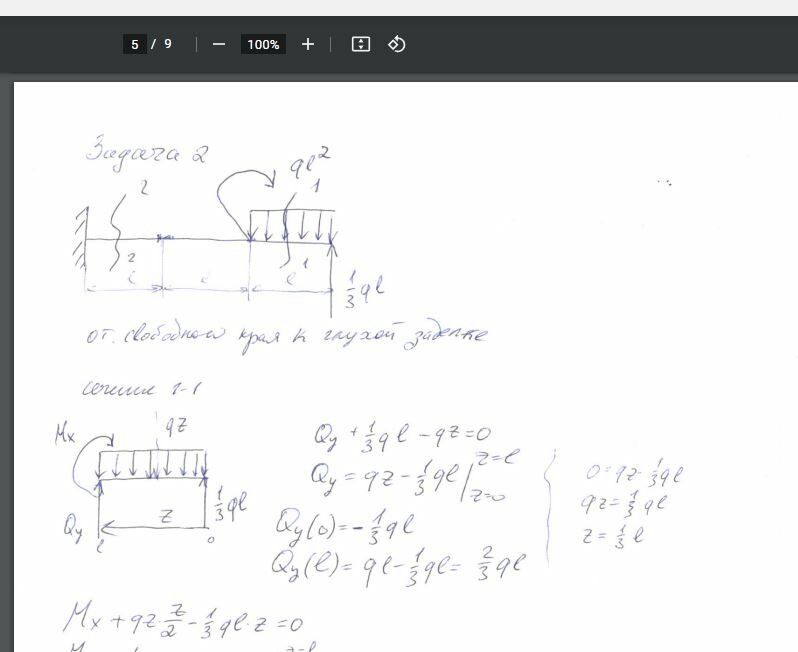 5 / 9 100%
Задача 2
ql²
2 1
2 1
l l l
1/3 ql
от. свободного края к глухой заделке
сечение 1-1
Mx qz
Qy + 1/3 ql - qz = 0
Qy = qz - 1/3 ql | z=l z=0
0 = qz - 1/3 ql
qz = 1/3 ql
z = 1/3 l
1/3 ql
Qy z
l 0
Qy(0) = - 1/3 ql
Qy(l) = ql - 1/3 ql = 2/3 ql
Mx + qz · z/2 - 1/3 ql · z = 0